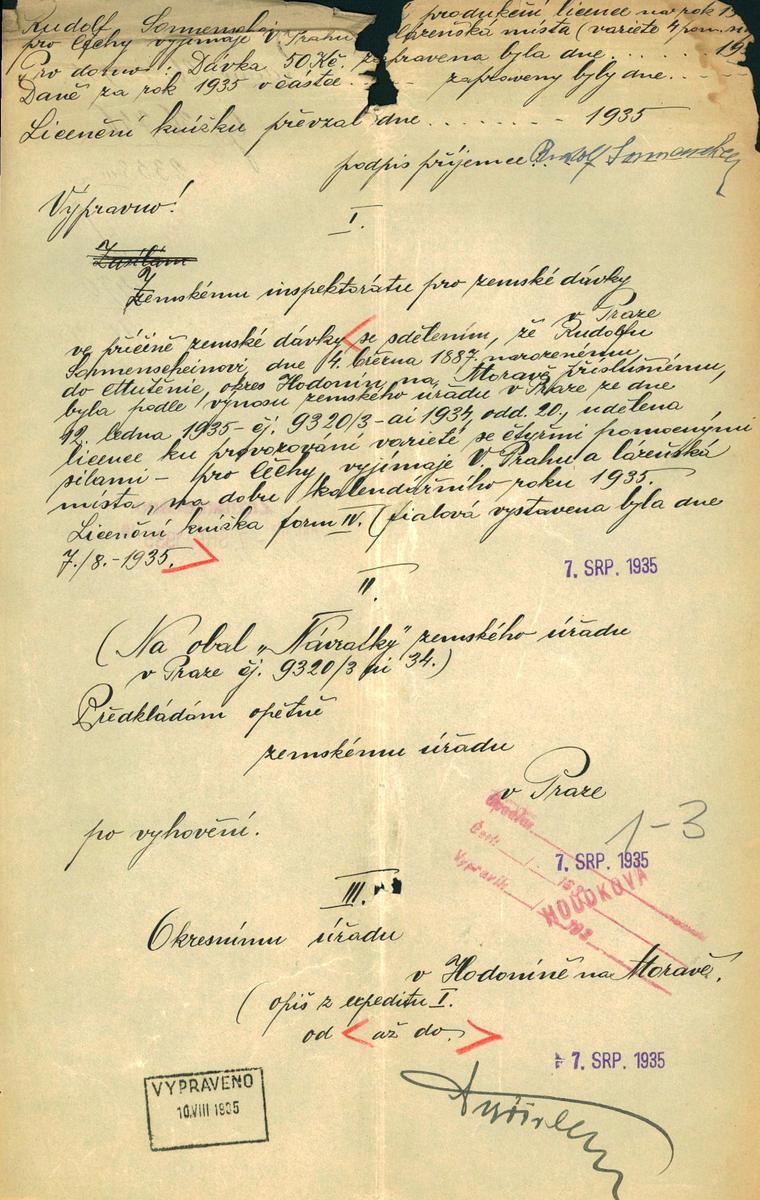 Rudolf Sonnenschein produkční licence na rok 19
pro Čechy vyjímaje v Prahu lázeňská místa (varieté 4 pom. sil
Pro domo: Dávka 50 Kč. zapravena byla dne . . . . . 19
Daně za rok 1935 v částce . . . zapraveny byly dne . . .
Licenční knížku převzal dne . . . . . . . . 1935
podpis příjemce: Rudolf Sonnenschein
Vypravno!
I.
Zasílám
Zemskému inspektorátu pro zemské dávky
v Praze
ve příčině zemské dávky < se sdělením, že Rudolfu
Sonnenscheinovi, dne 4. března 1887 narozenému,
do Mutěnic, okres Hodonín na Moravě příslušnému,
byla podle výnosu zemského úřadu v Praze ze dne
12. ledna 1935 - čj. 9320/3-ai 1934 odd. 20., udělena
licence ku provozování varieté se čtyřmi pomocnými
silami - pro Čechy, vyjímaje v Prahu a lázeňská
místa, na dobu kalendářního roku 1935.
Licenční knížka form IV. (fialová vystavena byla dne
7./8.-1935. >
7. SRP. 1935
II.
(Na obal „Návratky" zemského úřadu
v Praze čj. 9320/3 ai 34.)
Předkládám opětně
zemskému úřadu
v Praze
po vyhovění.
1-3
7. SRP. 1935
HOUDKOVÁ
III.
Okresnímu úřadu
v Hodoníně na Moravě.
(opis z expeditu I.
od < až do. >
7. SRP. 1935
VYPRAVENO
10. VIII 1935